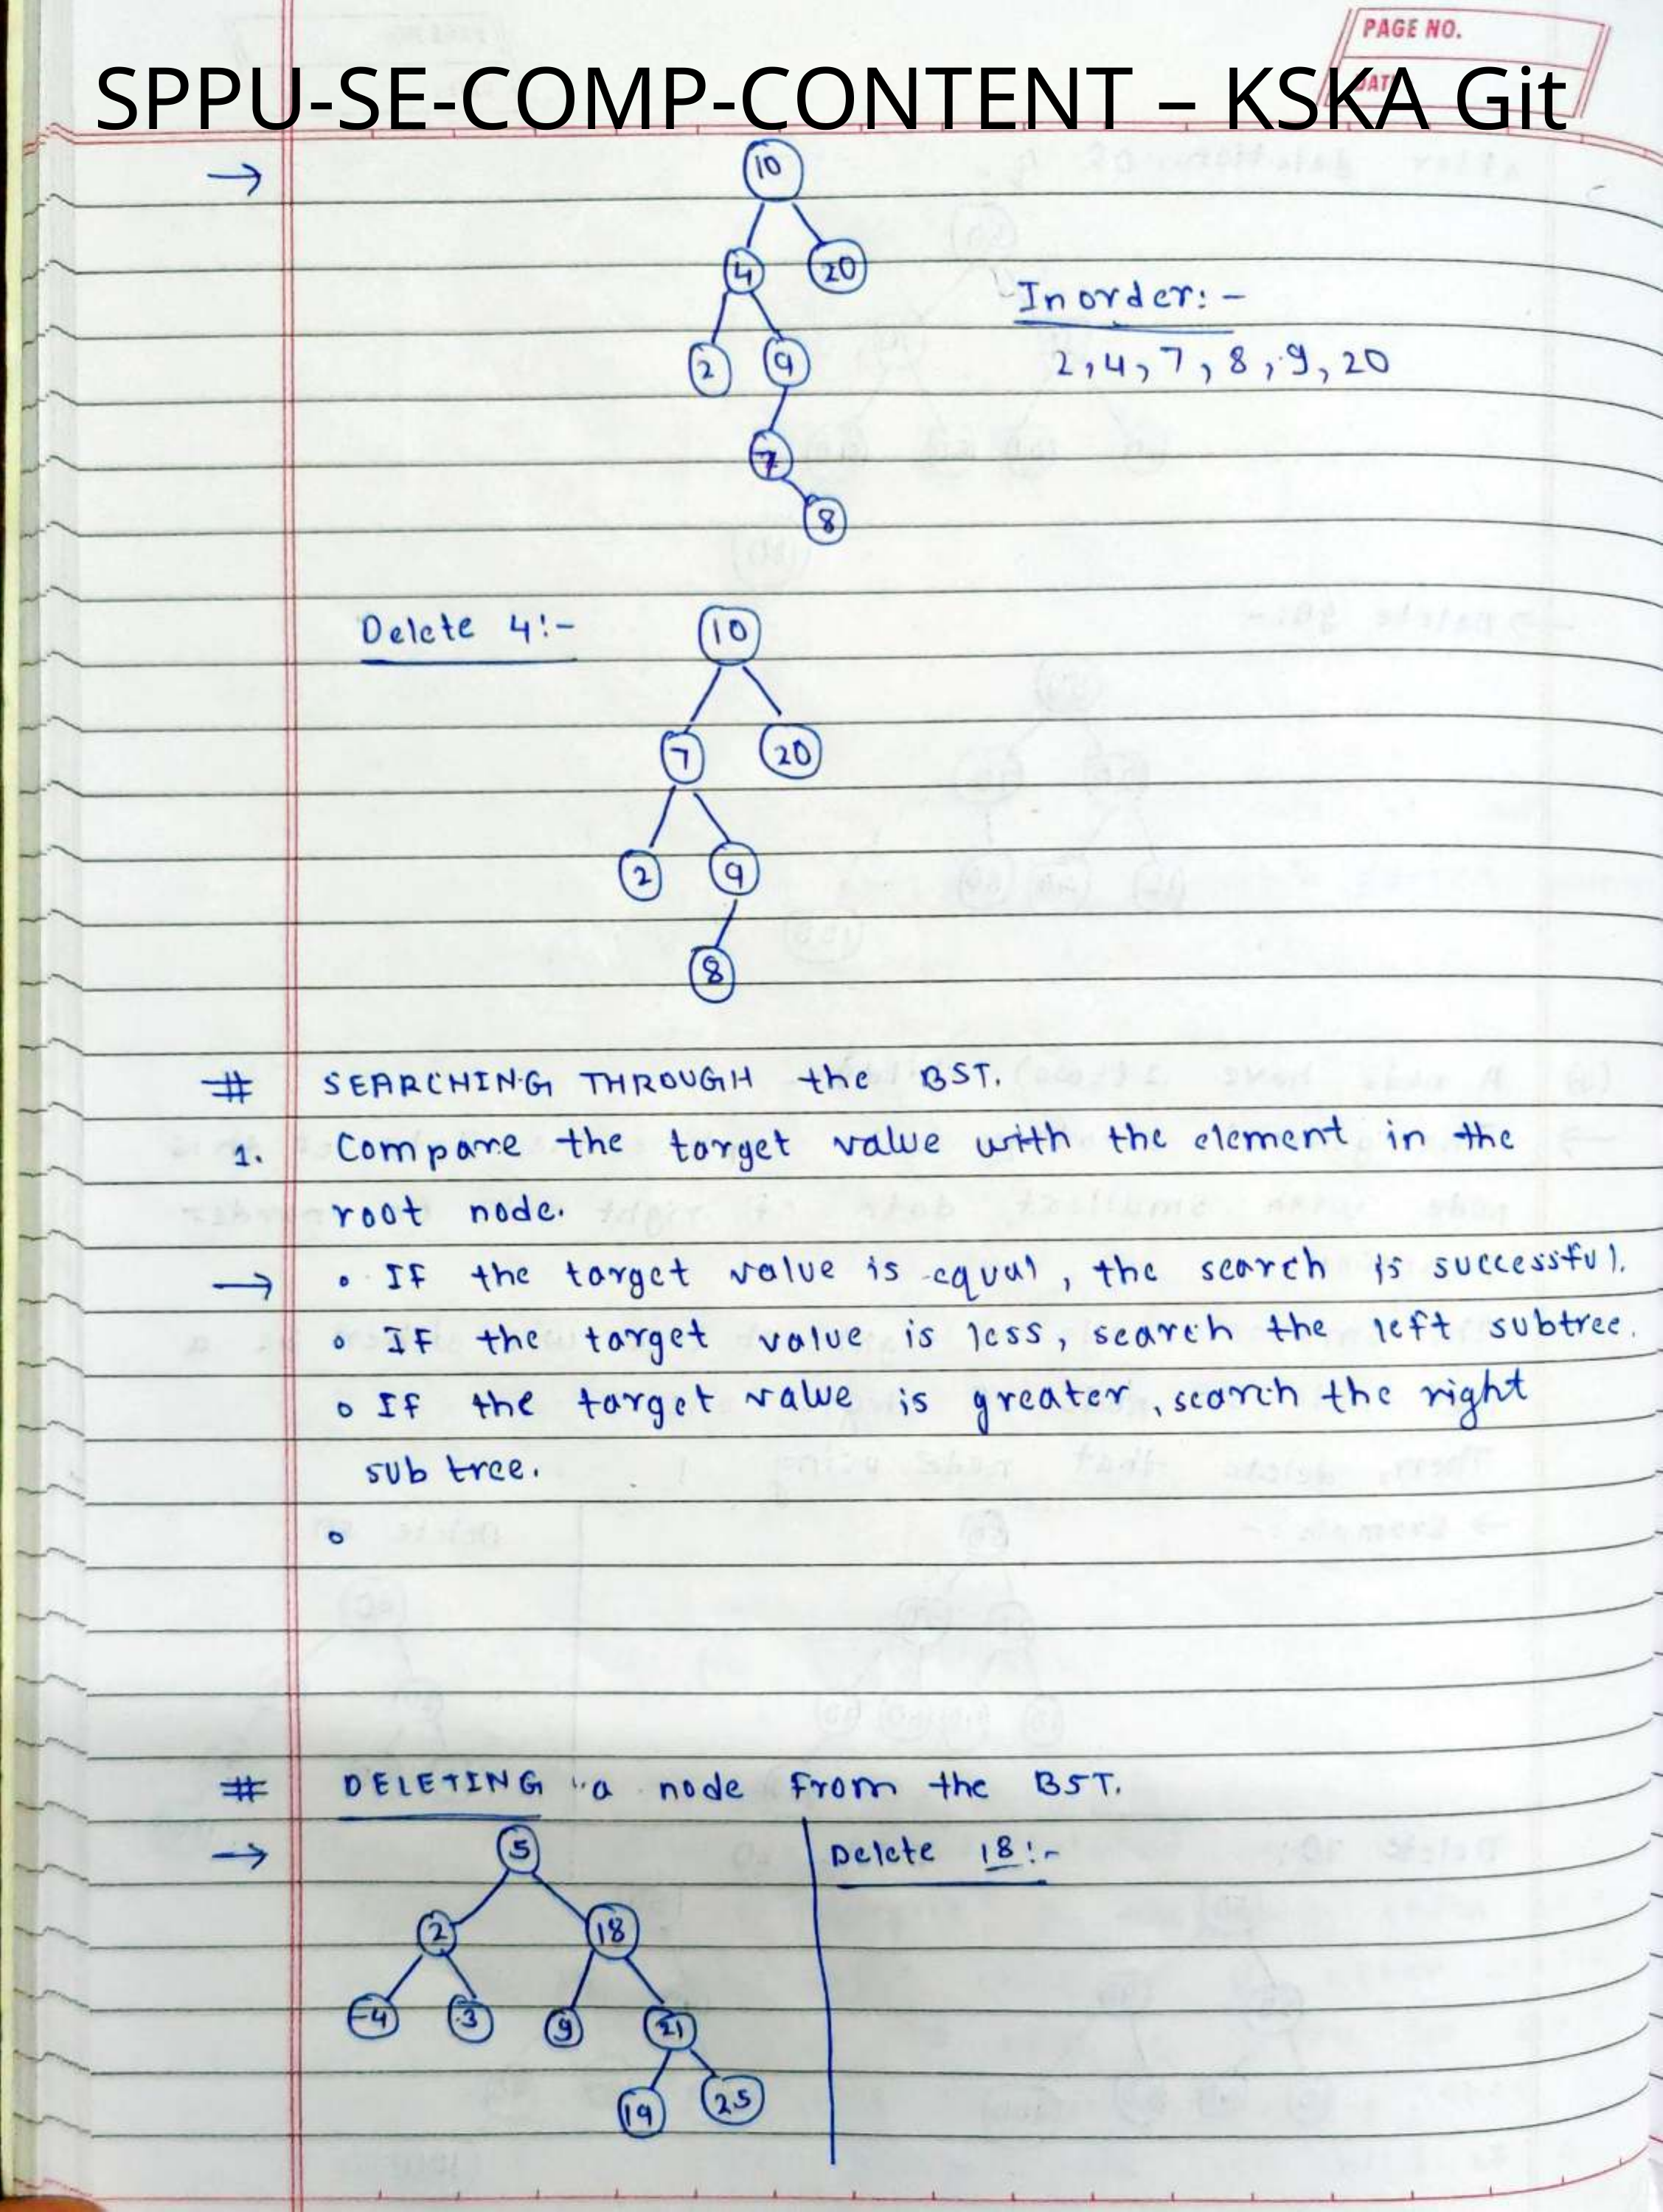 PAGE NO.
DATE
SPPU-SE-COMP-CONTENT – KSKA Git
→
10
4 20
Inorder:-
2 9
2, 4, 7, 8, 9, 20
7
8
Delete 4:-
10
7 20
2 9
8
# SEARCHING THROUGH the BST.
1. Compare the target value with the element in the
root node.
→ • If the target value is equal, the search is successful.
• If the target value is less, search the left subtree.
• If the target value is greater, search the right
sub tree.
•
# DELETING a node from the BST.
→ 5
Delete 18:-
2 18
-4 3 9 21
19 25